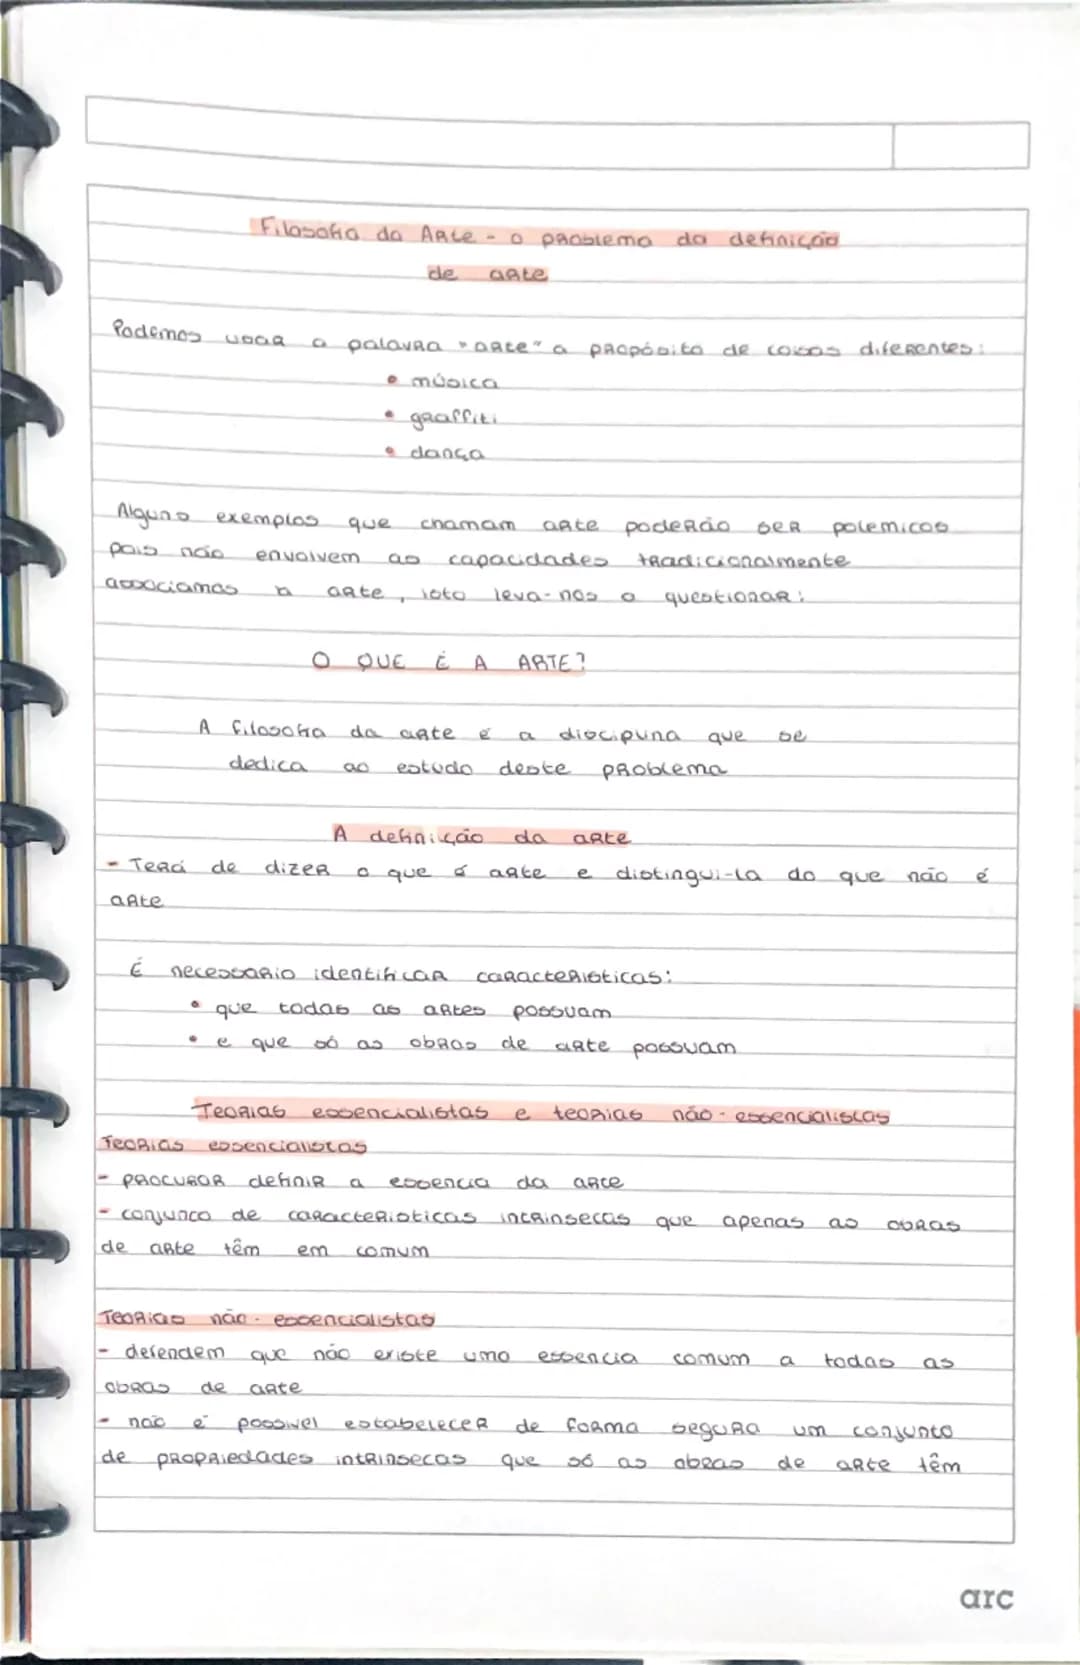 Filosofia da Arte - o problema da definição
de arte
Podemos usar a palavra "arte" a propósito de coisas diferentes:
• música
• graffiti
• dança
Alguns exemplos que chamam arte poderão ser polemicos
pois não envolvem as capacidades tradicionalmente
associamos à arte, isto leva-nos a questionar:
O QUE É A ARTE?
A filosofia da arte é a disciplina que se
dedica ao estudo deste problema
A definição da arte
- Terá de dizer o que é arte e distingui-la do que não é
arte
É necessario identificar caracteristicas:
• que todas as artes possuam
• e que só as obras de arte possuam
Teorias essencialistas e teorias não-essencialistas
Teorias essencialistas
- procurar definir a essencia da arte
- conjunto de caracteristicas intrinsecas que apenas as obras
de arte têm em comum
Teorias não-essencialistas
- defendem que não existe uma essencia comum a todas as
obras de arte
- não é possivel estabelecer de forma segura um conjunto
de propriedades intrinsecas que só as obras de arte têm
arc